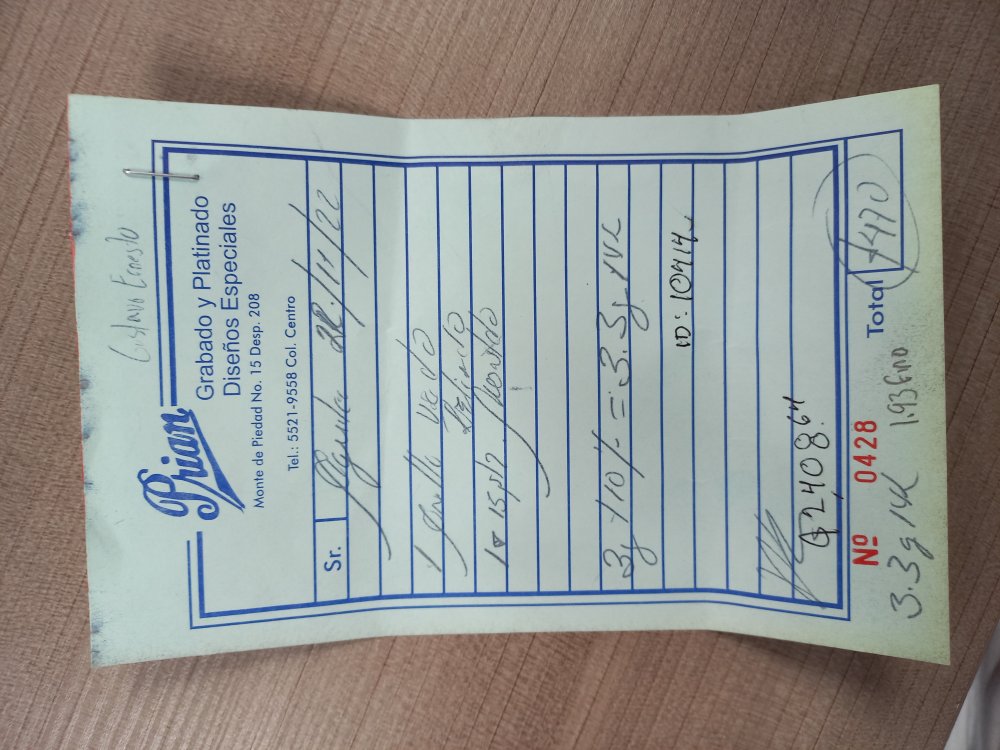 Gustavo Ernesto
Prian
Grabado y Platinado
Diseños Especiales
Monte de Piedad No. 15 Desp. 208
Tel.: 5521-9558 Col. Centro
Sr. 22/11/22
1
15
3g +10% = 3.3g 14K
ID: 10414
$2,408.64
Total 1470
Nº 0428
3.3g 14K 1.93 fino